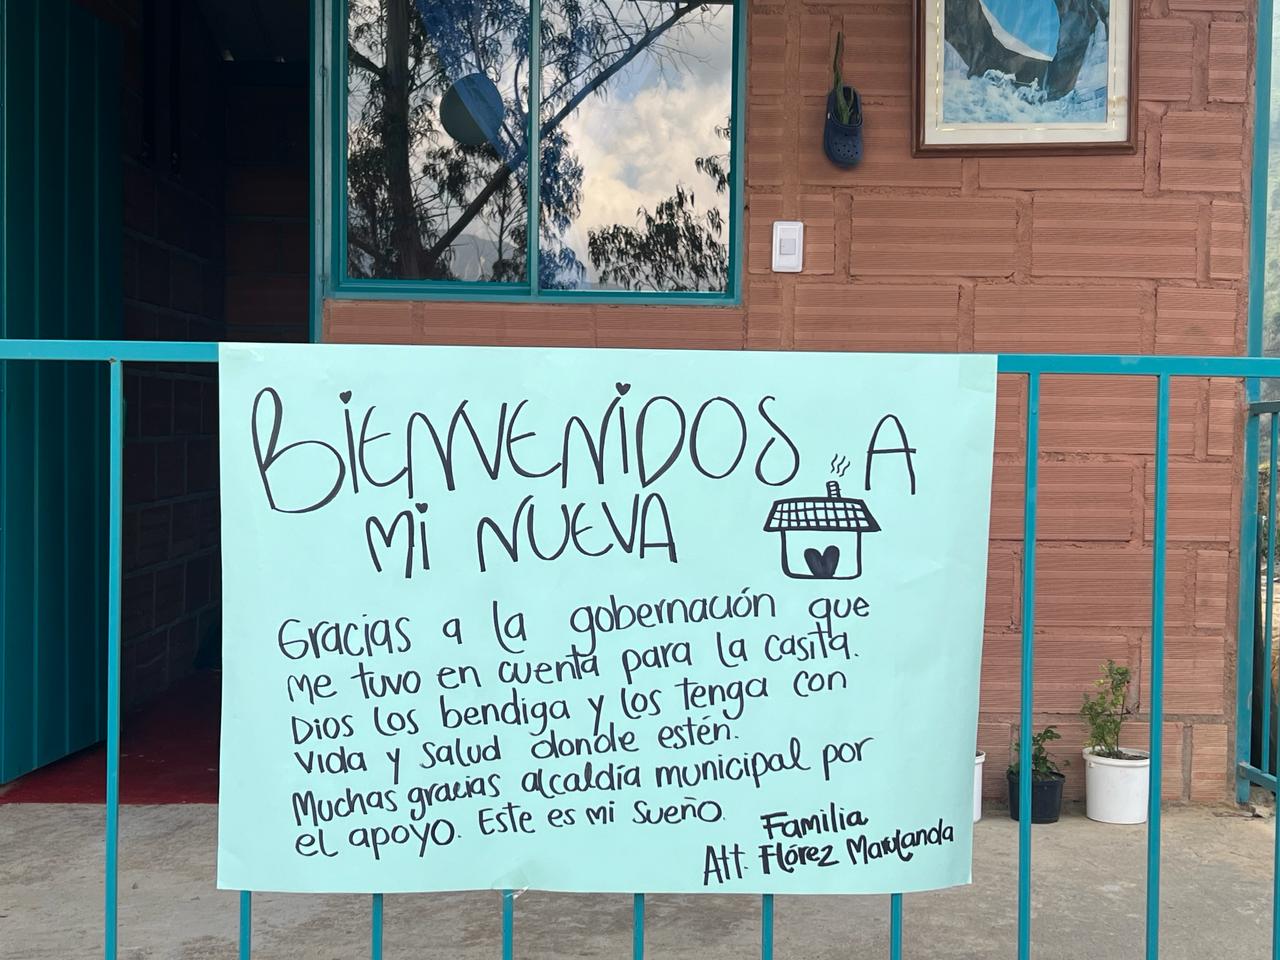 BIENVENIDOS A
MI NUEVA
Gracias a la gobernación que
me tuvo en cuenta para la casita.
Dios los bendiga y los tenga con
vida y salud donde estén.
Muchas gracias alcaldía municipal por
el apoyo. Este es mi sueño.
Familia
Att. Flórez Marulanda